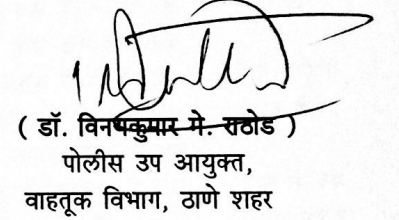 ( डॉ. विनयकुमार मे. राठोड )
पोलीस उप आयुक्त,
वाहतूक विभाग, ठाणे शहर